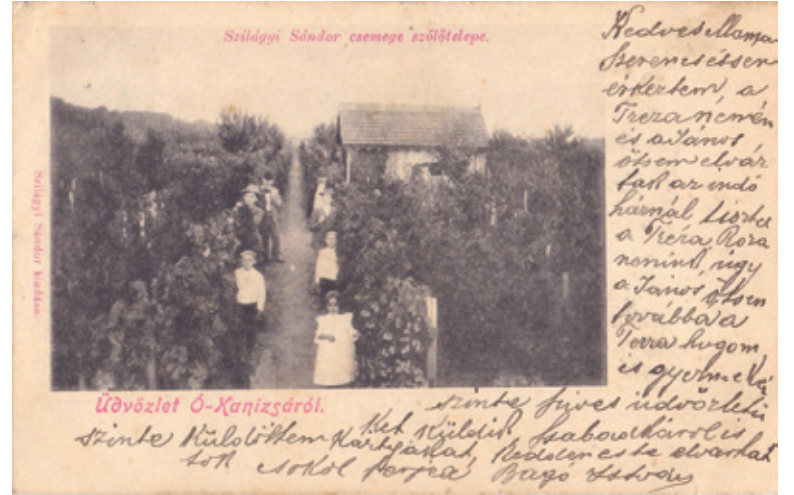 Szilágyi Sándor csemege szőlőtelepe.
Szilágyi Sándor kiadása.
Üdvözlet Ó-Kanizsáról.
Kedves Mama
Szerencséssen
érkeztem, a
Treza nemém
és a János
ötsem elvár
tak az indó
háznál tiszte
a Tréza, Roza
nenink, úgy
a János ötsen
továbbá a
Terra hugom
is
szinte szives üdvözletü
Ket Küldik, Szabadkárol is
szinte Küldöttem Kartyákat, Kedden este elvarhat
tok csokol ferjed Bagó Istvan